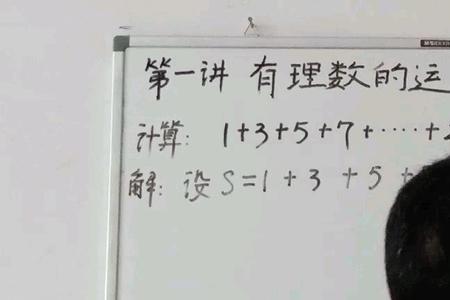 第一讲 有理数的运
计算: 1+3+5+7+·····+
解: 设 S=1+3+5+